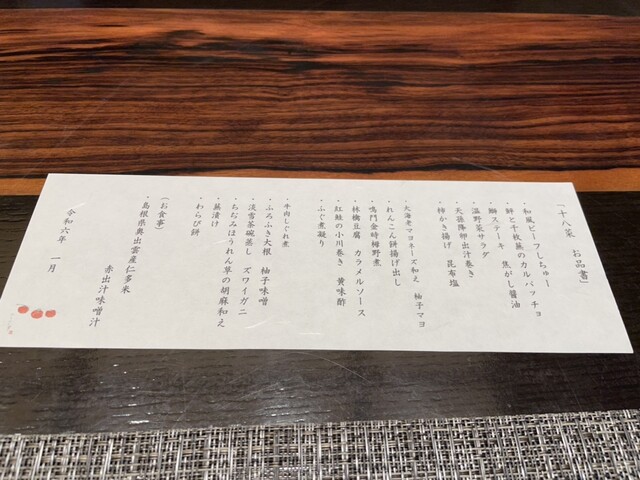 「十八菜　お品書」
・和風ビーフしちゅー
・鮃と千枚蕪のカルパッチョ
・鰤ステーキ　焦がし醤油
・温野菜サラダ
・天孫降卵出汁巻き
・柿かき揚げ　昆布塩
・大海老マヨネーズ和え　柚子マヨ
・れんこん餅揚げ出し
・鳴門金時檸野煮
・林檎豆腐　カラメルソース
・紅鮭の小川巻き　黄味酢
・ふぐ煮凝り
・牛肉しぐれ煮
・ふろふき大根　柚子味噌
・淡雪茶碗蒸し　ズワイガニ
・ちぢみほうれん草の胡麻和え
・蕪漬け
・わらび餅
（お食事）
・島根県奥出雲産仁多米
赤出汁味噌汁
令和六年　一月